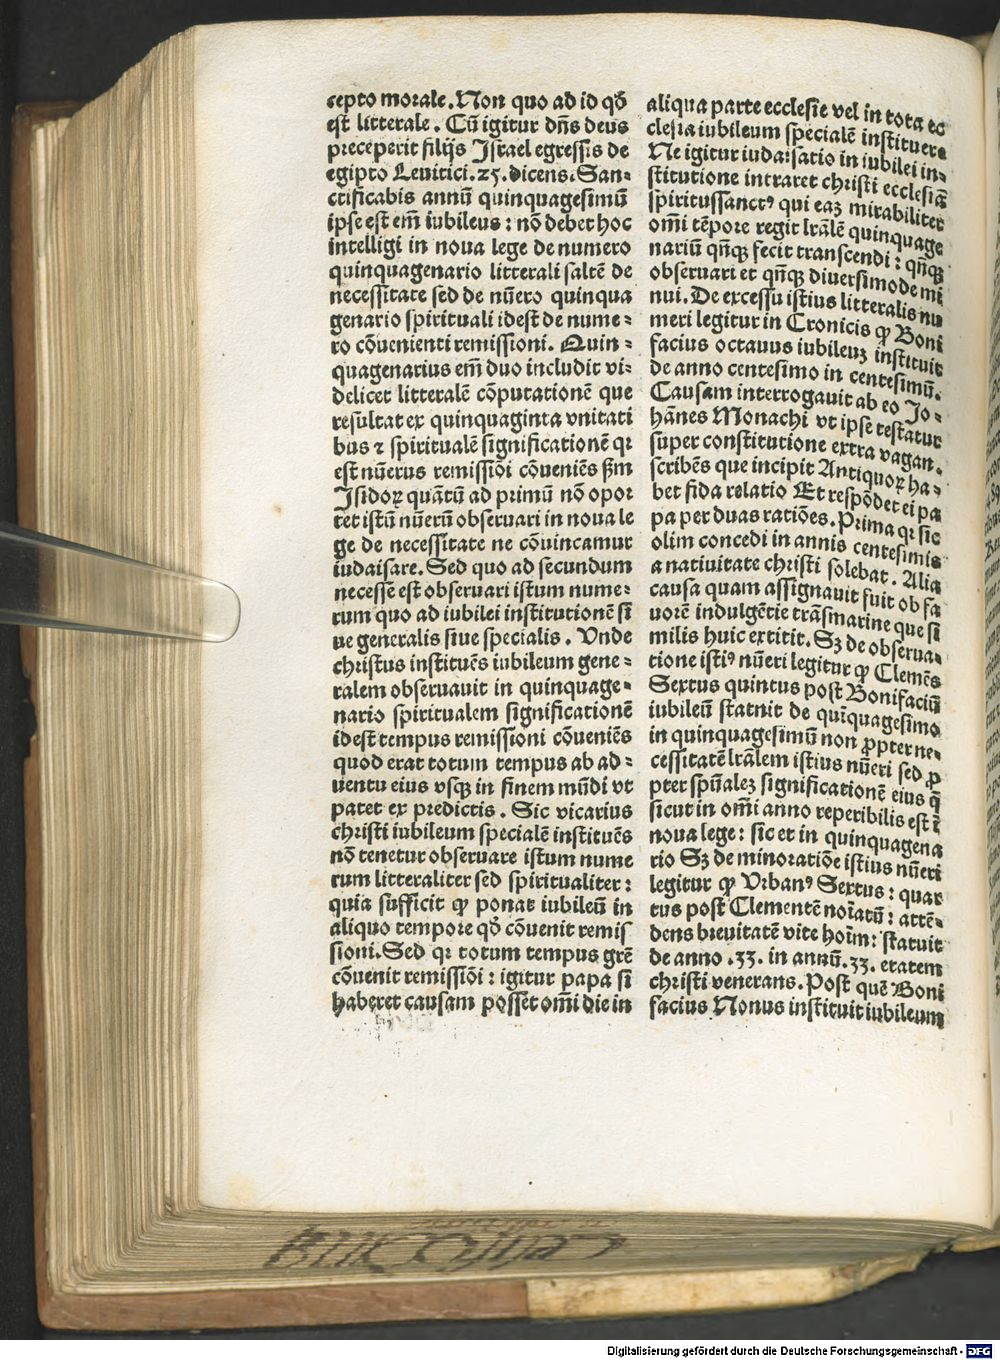 cepto morale. Non quo ad id qđ
est litterale. Cũ igitur dñs deus
preceperit filijs Israel egressis de
egipto Leuitici. 25. dicens. San-
ctificabis annũ quinquagesimũ
ipse est em̃ iubileus : nõ debet hoc
intelligi in noua lege de numero
quinquagenario litterali saltẽ de
necessitate sed de nũero quinqua
genario spirituali idest de nume-
ro cõuenienti remissioni. Quin-
quagenarius em̃ duo includit vi-
delicet litteralẽ cõputationẽ que
resultat ex quinquaginta vnitati
bus ⁊ spiritualẽ significationẽ qꝛ
est nũerus remissiõi cõueniẽs ẜm
Isidoꝝ quãtũ ad primũ nõ opor
tet istũ nũerũ obseruari in noua le
ge de necessitate ne cõuincamur
iudaisare. Sed quo ad secundum
necesse est obseruari istum nume-
rum quo ad iubilei institutionẽ si
ue generalis siue specialis. Vnde
christus instituẽs iubileum gene-
ralem obseruauit in quinquage-
nario spiritualem significationẽ
idest tempus remissioni cõueniẽs
quod erat totum tempus ab ad-
uentu eius vsqꝫ in finem mũdi vt
patet ex predictis. Sic vicarius
christi iubileum specialẽ instituẽs
nõ tenetur obseruare istum nume
rum litteraliter sed spiritualiter :
quia sufficit ꝙ ponat iubileũ in
aliquo tempore qđ cõuenit remis
sioni. Sed qꝛ totum tempus grẽ
cõuenit remissiõi : igitur papa si
haberet causam posset om̃i die in
aliqua parte ecclesie vel in tota ec
clesia iubileum specialẽ instituere
Ne igitur iudaisatio in iubilei in-
stitutione intraret christi ecclesiã
spiritussanctꝰ qui eaꝫ mirabiliter
om̃i tẽpore regit lr̃alẽ quinquage
nariũ qñqꝫ fecit transcendi : qñqꝫ
obseruari et qñqꝫ diuersimode mi
nui. De excessu istius litteralis nu
meri legitur in Cronicis ꝙ Boni
facius octauus iubileuꝫ instituit
de anno centesimo in centesimũ.
Causam interrogauit ab eo Jo-
hãnes Monachi vt ipse testatur
super constitutione extra vagan.
scribẽs que incipit Antiquoꝝ ha-
bet fida relatio Et respõdet ei pa
pa per duas ratiões. Prima qꝛ sic
olim concedi in annis centesimis
a natiuitate christi solebat. Alia
causa quam assignauit fuit ob fa
uorẽ indulgẽtie trãsmarine que si
milis huic extitit. Sꝫ de obserua-
tione istiꝰ nũeri legitur ꝙ Clemẽs
Sextus quintus post Bonifaciũ
iubileũ statuit de quĩquagesimo
in quinquagesimũ non ꝓpter ne-
cessitatẽ lr̃alem istius nũeri sed ꝓ
pter spũaleꝫ significationẽ eius q̃
sicut in om̃i anno reperibilis est ĩ
noua lege : sic et in quinquagena
rio Sꝫ de minoratiõe istius nũeri
legitur ꝙ Vrbanꝰ Sextus : quar
tus post Clementẽ noĩatũ : attẽ-
dens breuitatẽ vite hoĩm : statuit
de anno .33. in annũ .33. etatem
christi venerans. Post quẽ Boni
facius Nonus instituit iubileum
Digitalisierung gefördert durch die Deutsche Forschungsgemeinschaft - DFG